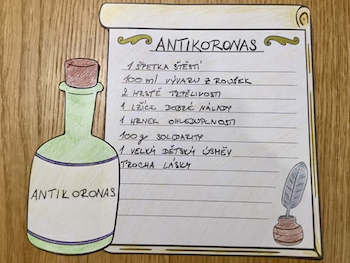 ANTIKORONAS
1 ŠPETKA ŠTĚSTÍ
100 ml VÝVARU Z ROUŠEK
2 HRSTĚ TRPĚLIVOSTI
1 LŽÍCE DOBRÉ NÁLADY
1 HRNEK OHLEDUPLNOSTI
100g SOLIDARITY
1 VELKÝ DĚTSKÝ ÚSMĚV
TROCHA LÁSKY
ANTIKORONAS